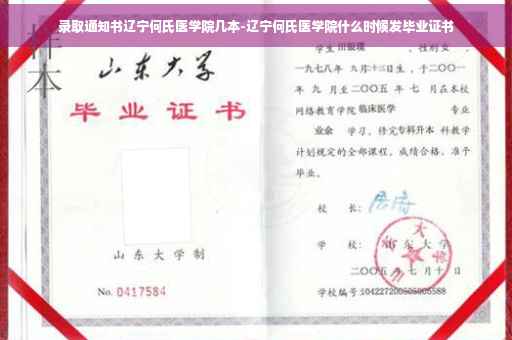 录取通知书辽宁何氏医学院几本-辽宁何氏医学院什么时候发毕业证书
样本
山东大学
毕业证书
山东大学制
No. 0417584
学生 性别女，
一九七八年 九月十三日生，于二〇〇一
年 九 月至二〇〇五 年 七 月在本校
网络教育学院 临床医学 专业
业余 学习，修完专科升本 科教学
计划规定的全部课程，成绩合格，准予
毕业。
校 长：
学 校：山东大学
二〇〇五年七月十日
学校编号：104227200505005588